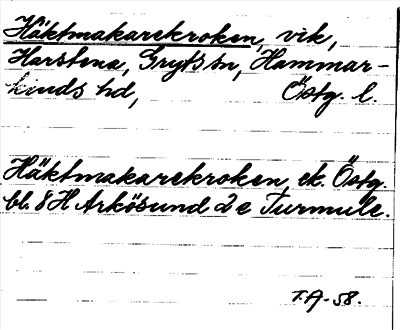 Häktmakarekroken, vik,
Harstena, Gryts sn, Hammar-
kinds hd, Östg. l.
Häktmakarekroken, ek. Östg.
bl. 8 H Arkösund 2 e Turmule.
T.A-58.